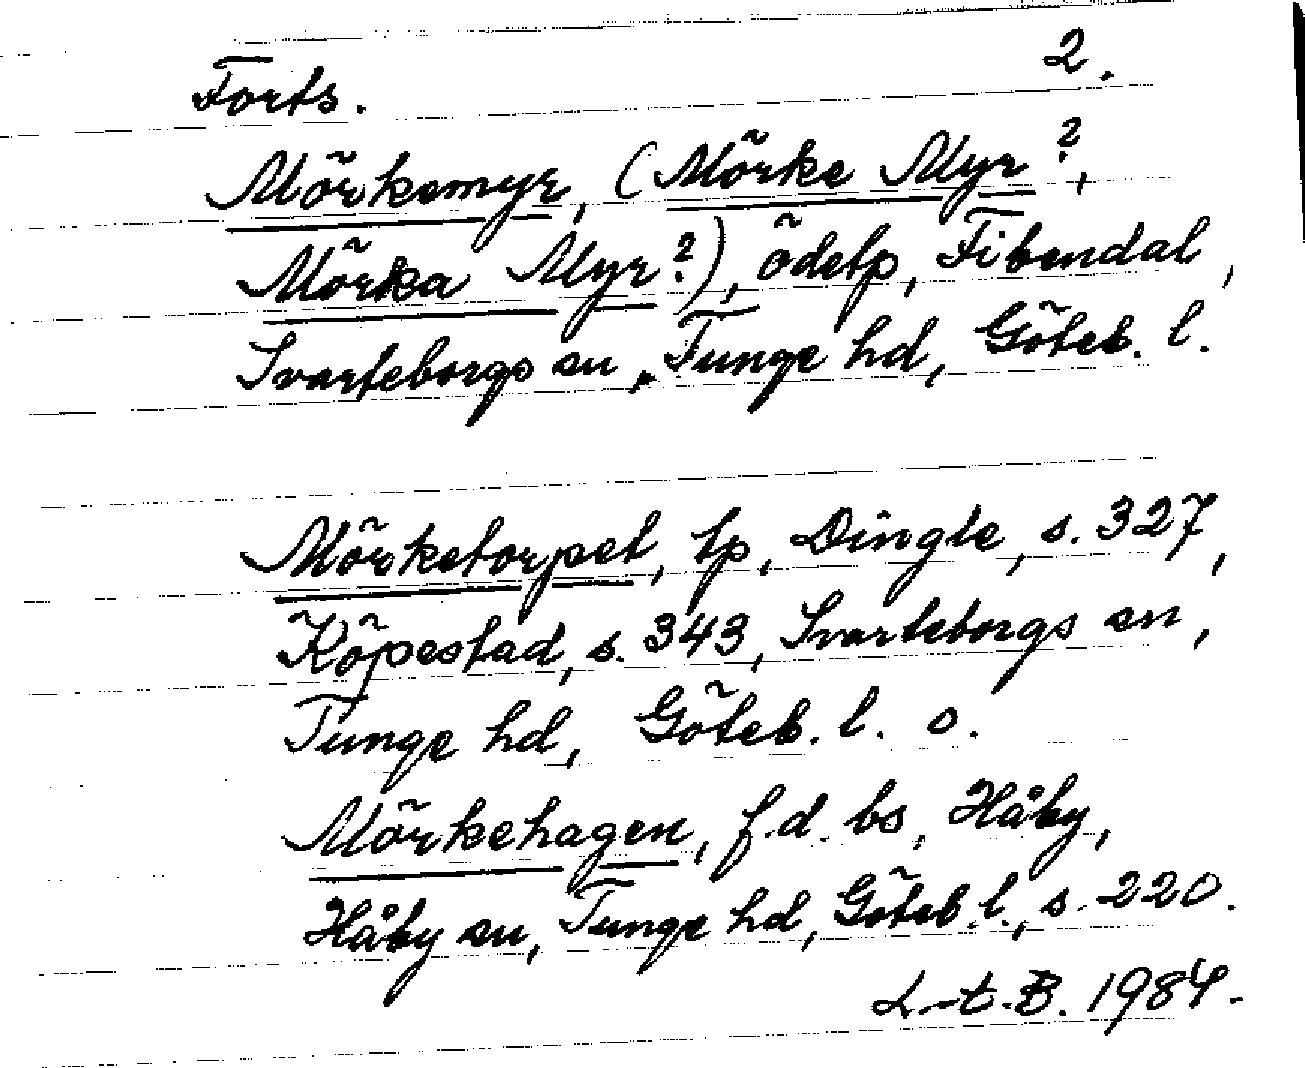 Forts. 2.
Mörkemyr, (Mörke Myr?,
Mörka Myr?), ödetp, Fibendal,
Svarteborgs sn, Tunge hd, Göteb. l.
Mörketorpet, tp, Dingle, s. 327,
Köpestad, s. 343, Svarteborgs sn,
Tunge hd, Göteb. l. o.
Mörkehagen, f.d. bs, Håby,
Håby sn, Tunge hd, Göteb. l., s. 220.
L-t.B. 1984.